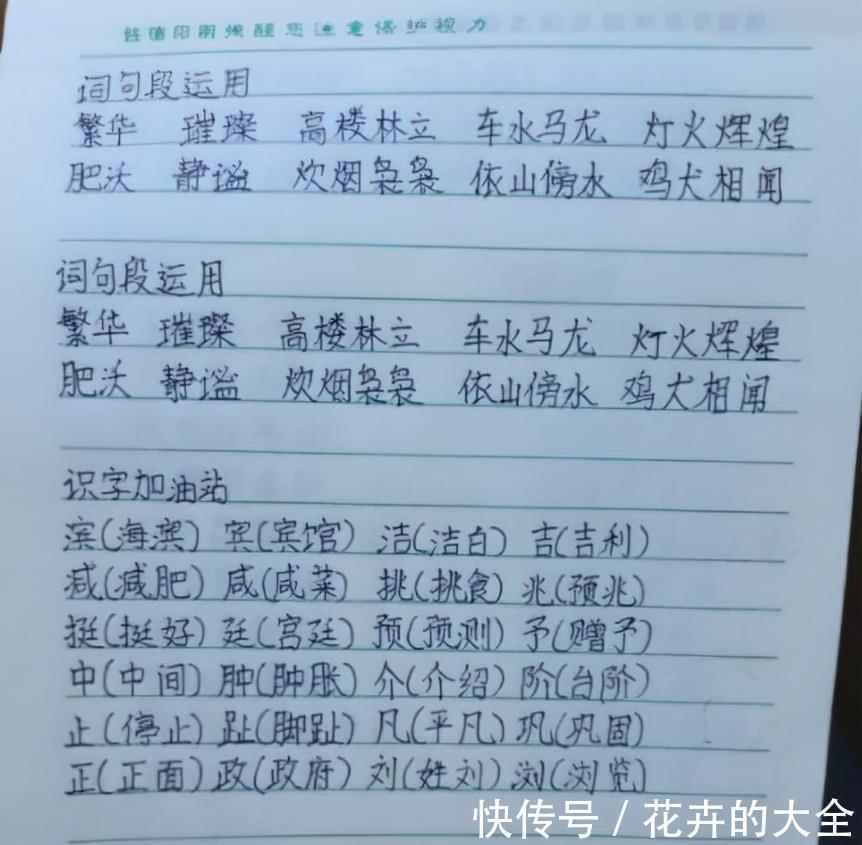 词句段运用
繁华 璀璨 高楼林立 车水马龙 灯火辉煌
肥沃 静谧 炊烟袅袅 依山傍水 鸡犬相闻
词句段运用
繁华 璀璨 高楼林立 车水马龙 灯火辉煌
肥沃 静谧 炊烟袅袅 依山傍水 鸡犬相闻
识字加油站
滨(海滨) 宾(宾馆) 洁(洁白) 吉(吉利)
减(减肥) 咸(咸菜) 挑(挑食) 兆(预兆)
挺(挺好) 廷(宫廷) 预(预测) 予(赠予)
中(中间) 肿(肿胀) 介(介绍) 阶(台阶)
止(停止) 趾(脚趾) 凡(平凡) 巩(巩固)
正(正面) 政(政府) 刘(姓刘) 浏(浏览)
快传号 / 花卉的大全